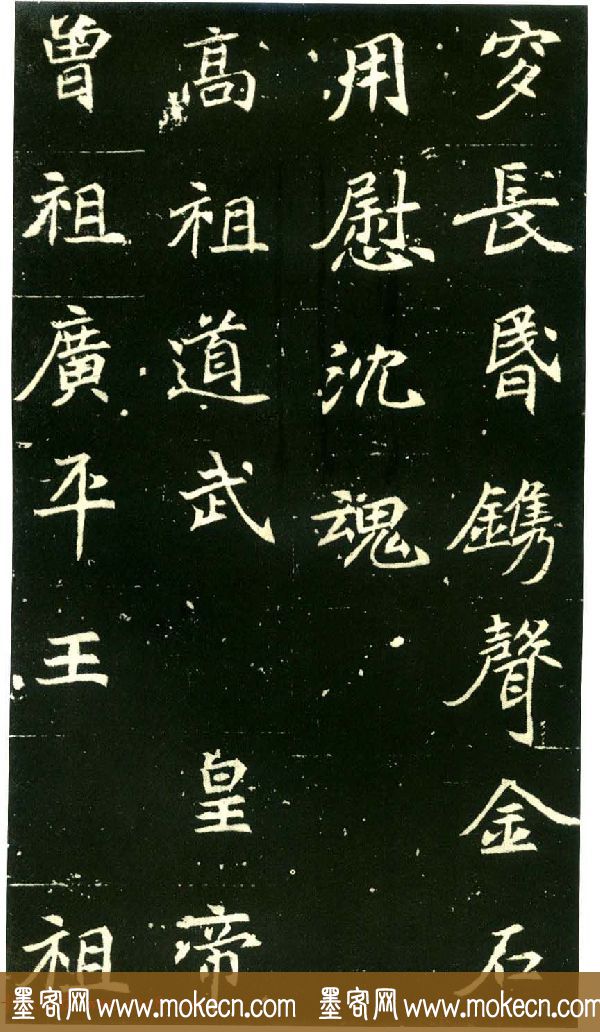 穸長昬鐫聲金石
用慰沈魂
高祖道武皇帝
曾祖廣平王祖
墨客网 www.mokecn.com 墨客网 www.mokecn.com